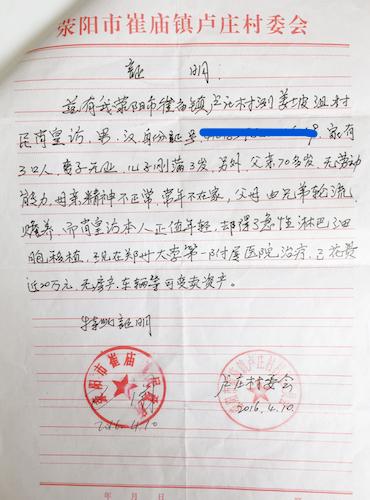 荥阳市崔庙镇卢庄村委会
证 明:
兹有我荥阳市崔庙镇卢庄村涧姜坡组村
民肖皇访、男、汉、身份证号 家有
3口人,妻子无业,儿子刚满3岁,另外,父亲70多岁,无劳动
能力,母亲精神不正常,常年不在家,父母由兄弟轮流
赡养,而肖皇访本人正值年轻,却得了急性淋巴细
胞移植,现在郑州大学第一附属医院治疗,已花费
近20万元,无房产、车辆等可变卖资产。
特此证明
荥阳市崔庙
2016.4.10
卢庄村委会
2016.4.10.
年 月 日